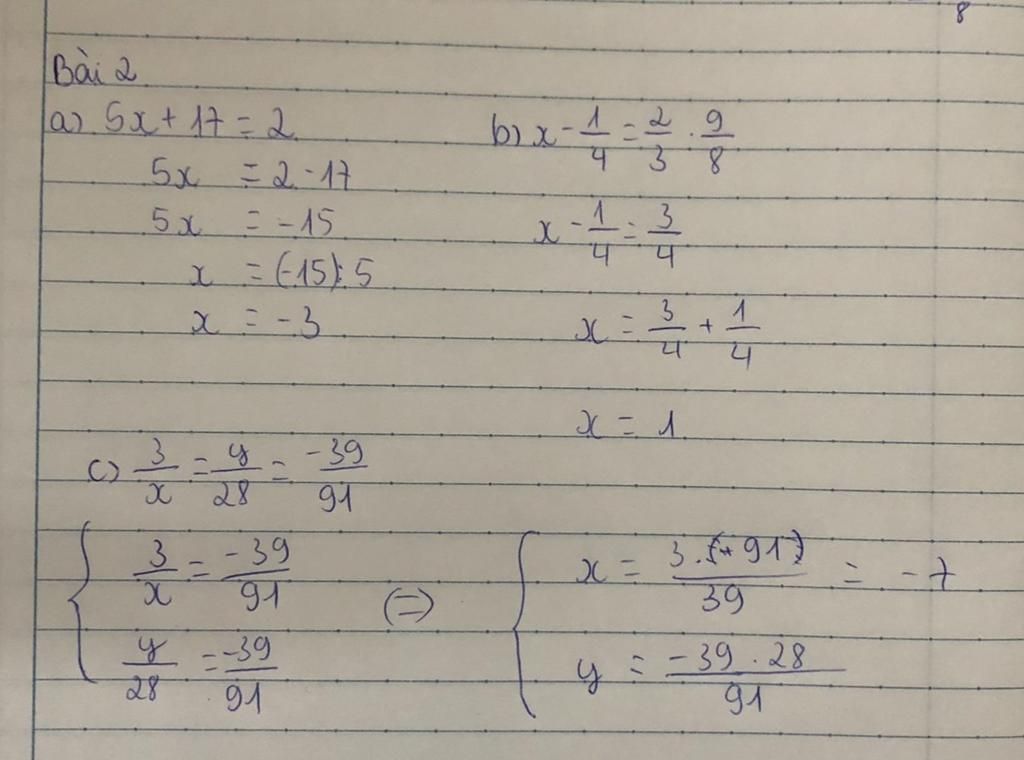 8
Bài 2
a) 5x + 17 = 2
5x = 2 - 17
5x = -15
x = (-15) : 5
x = -3
b) x - 1/4 = 2/3 . 9/8
x - 1/4 = 3/4
x = 3/4 + 1/4
x = 1
c) 3/x = y/28 = -39/91
{ 3/x = -39/91
y/28 = -39/91
(=)
{ x = 3.(+91)/39 = -7
y = -39.28/91